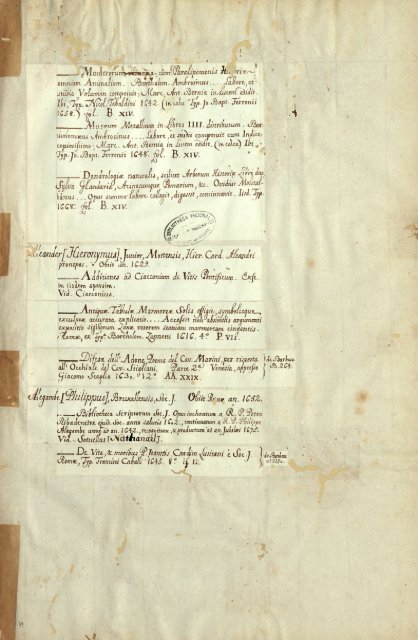 Monstrorum Historia, cum Paralipomenis Historiae
omnium Animalium. Bartholom. Ambrosinus.... Labore, et
studio Volumen composuit. Marc. Ant. Bernia in lucem edidit.
Ibi, Typ. Nicol. Tebaldini 1642 (in calce Typ. Jo. Bapt. Ferronii
1658.) fol. B XIV.
Musaeum Metallicum in libros IIII. distributum. Bar-
tholomaeus Ambrosinus.... labore, et studio composuit cum Indice
copiosissimo; Marc. Ant. Bernia in lucem edidit, (in calce) Ibi,
Typ. Jo. Bapt. Ferronii 1648. fol. B XIV.
Dendrologiae naturalis, scilicet Arborum Historiae Libri duo
Sylva Glandaria, Acinosumque Pomarium, &c. Ovidius Montal-
banus... Opus summo labore collegit, digessit, concinnavit. Ibid. Typ.
1668. fol. B XIV.
Aleander [Hieronymus], Junior, Mottensis, Hier. Card. Aleandri
pronepos. Obiit an. 1629.
Additiones ad Ciacconium de Vitis Pontificum. Exst.
in eisdem operibus.
Vid. Ciacconius.
Antiquae Tabulae Marmoreae Solis effigie, symbolisque
exculptae accurata explicatio... Accessit non absimilis argumenti
expositio sigillorum Zonae veterem statuam marmoream cingentis.
Romae, ex typ. Barthelom. Zannetti 1616. 4.° P VII.
Difesa dell'Adone Poema del Cav. Marini per risposta
all'Occhiale del Cav. Stigliani. Parte 2.ª Venetia, appresso
Giacomo Scaglia 1630. 12.° AA. XXIX.
Alegambe [Philippus], Bruxellensis, Soc. J. Obiit Romae an. 1652.
Bibliotheca Scriptorum Soc. J. Opus inchoatum a R. P. Petro
Ribadeneira ejusd. Soc. anno salutis 1602, continuatum a R. P. Philippo
Alegambe usque ad an. 1642, recognitum, & productum ad an. Jubilaei 1675.
Vid. Sotuellus [Nathanael].
De Vita, & moribus P. Joannis Cardim Lusitani è Soc. J.
Romae, Typ. Francisci Caballi 1645. 8.°